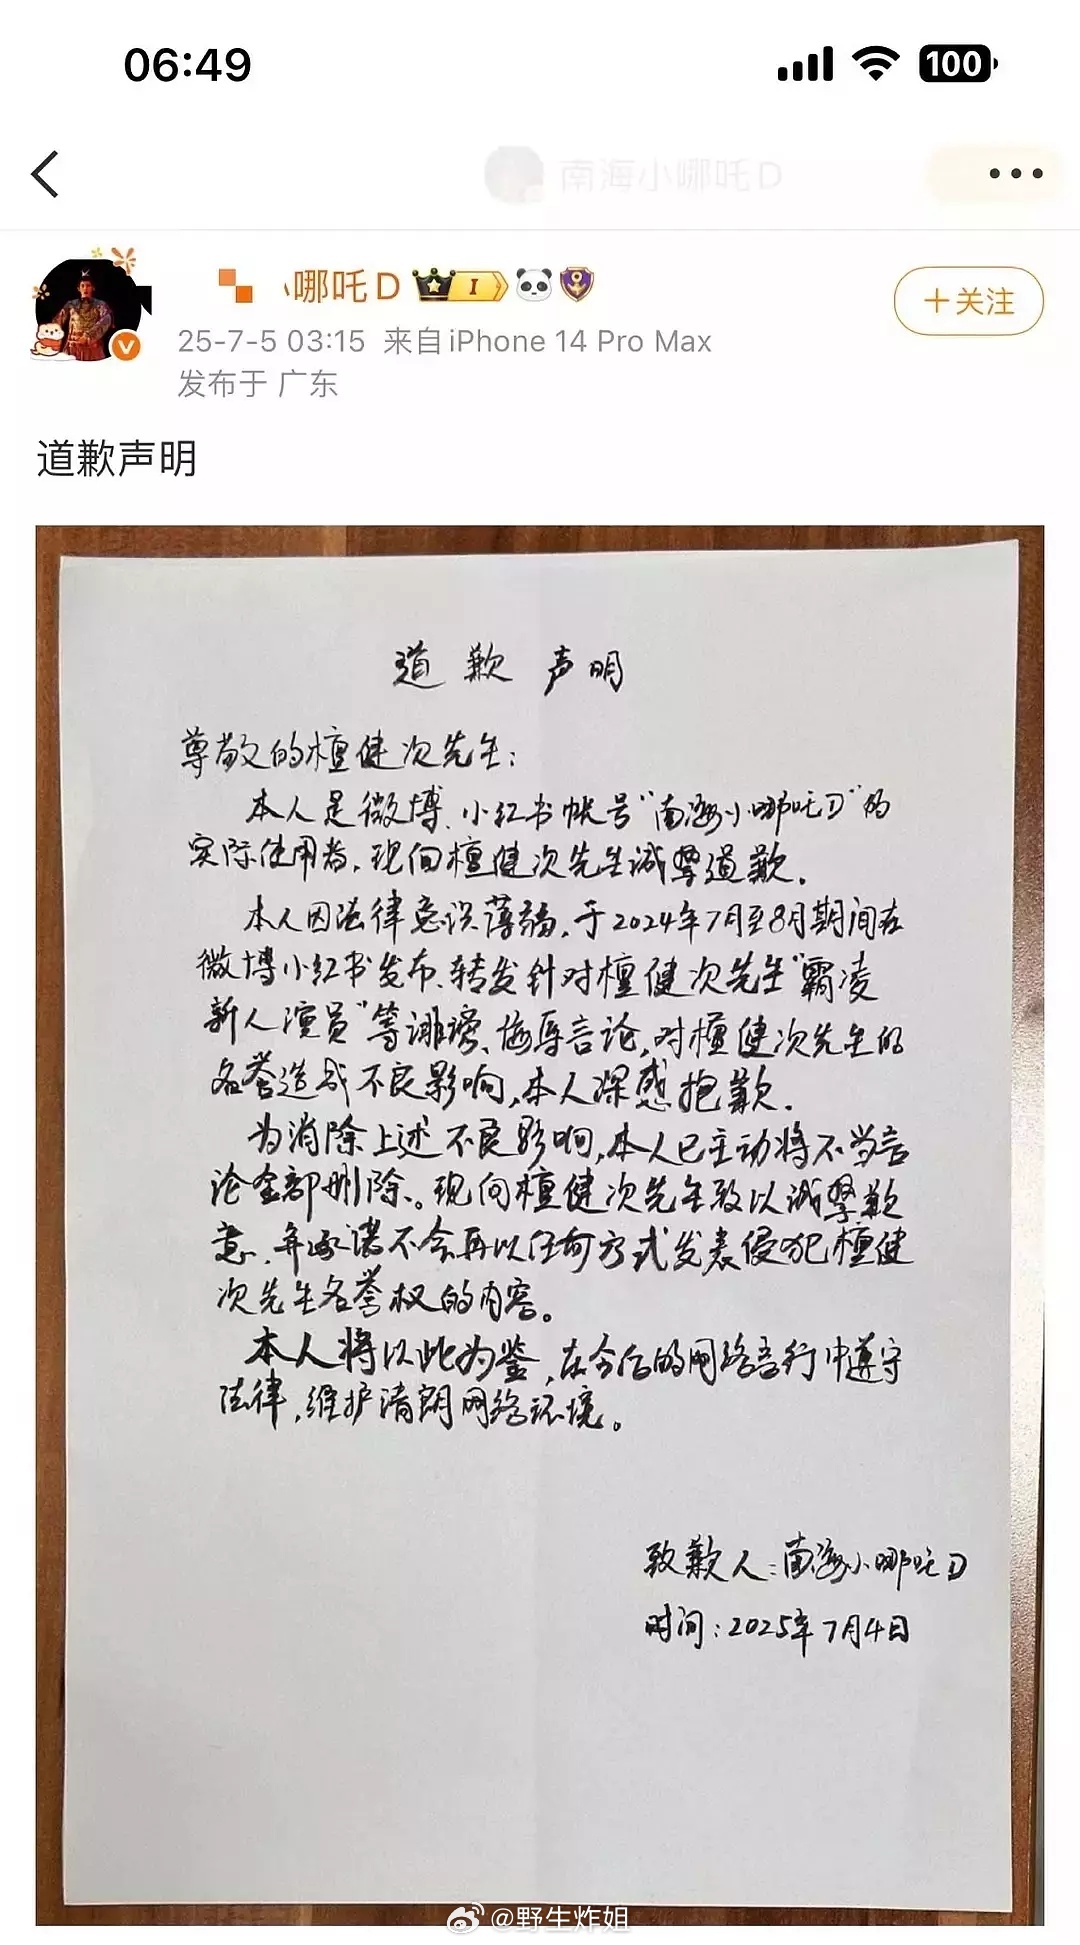 06:49
100
南海小哪吒D
哪吒D
I
25-7-5 03:15 来自iPhone 14 Pro Max
发布于 广东
+关注
道歉声明
道歉声明
尊敬的檀健次先生:
本人是微博、小红书帐号“南海小哪吒D”的
实际使用者,现向檀健次先生诚挚道歉.
本人因法律意识薄弱,于2024年7月至8月期间在
微博小红书发布、转发针对檀健次先生“霸凌
新人演员”等诽谤、侮辱言论,对檀健次先生的
名誉造成不良影响,本人深感抱歉.
为消除上述不良影响,本人已主动将不当言
论全部删除、。现向檀健次先生致以诚挚歉
意,并承诺不会再以任何方式发表侵犯檀健
次先生名誉权的内容。
本人将以此为鉴,在今后的网络言行中遵守
法律,维护清朗网络环境。
致歉人:南海小哪吒D
时间:2025年7月4日
@野生炸姐